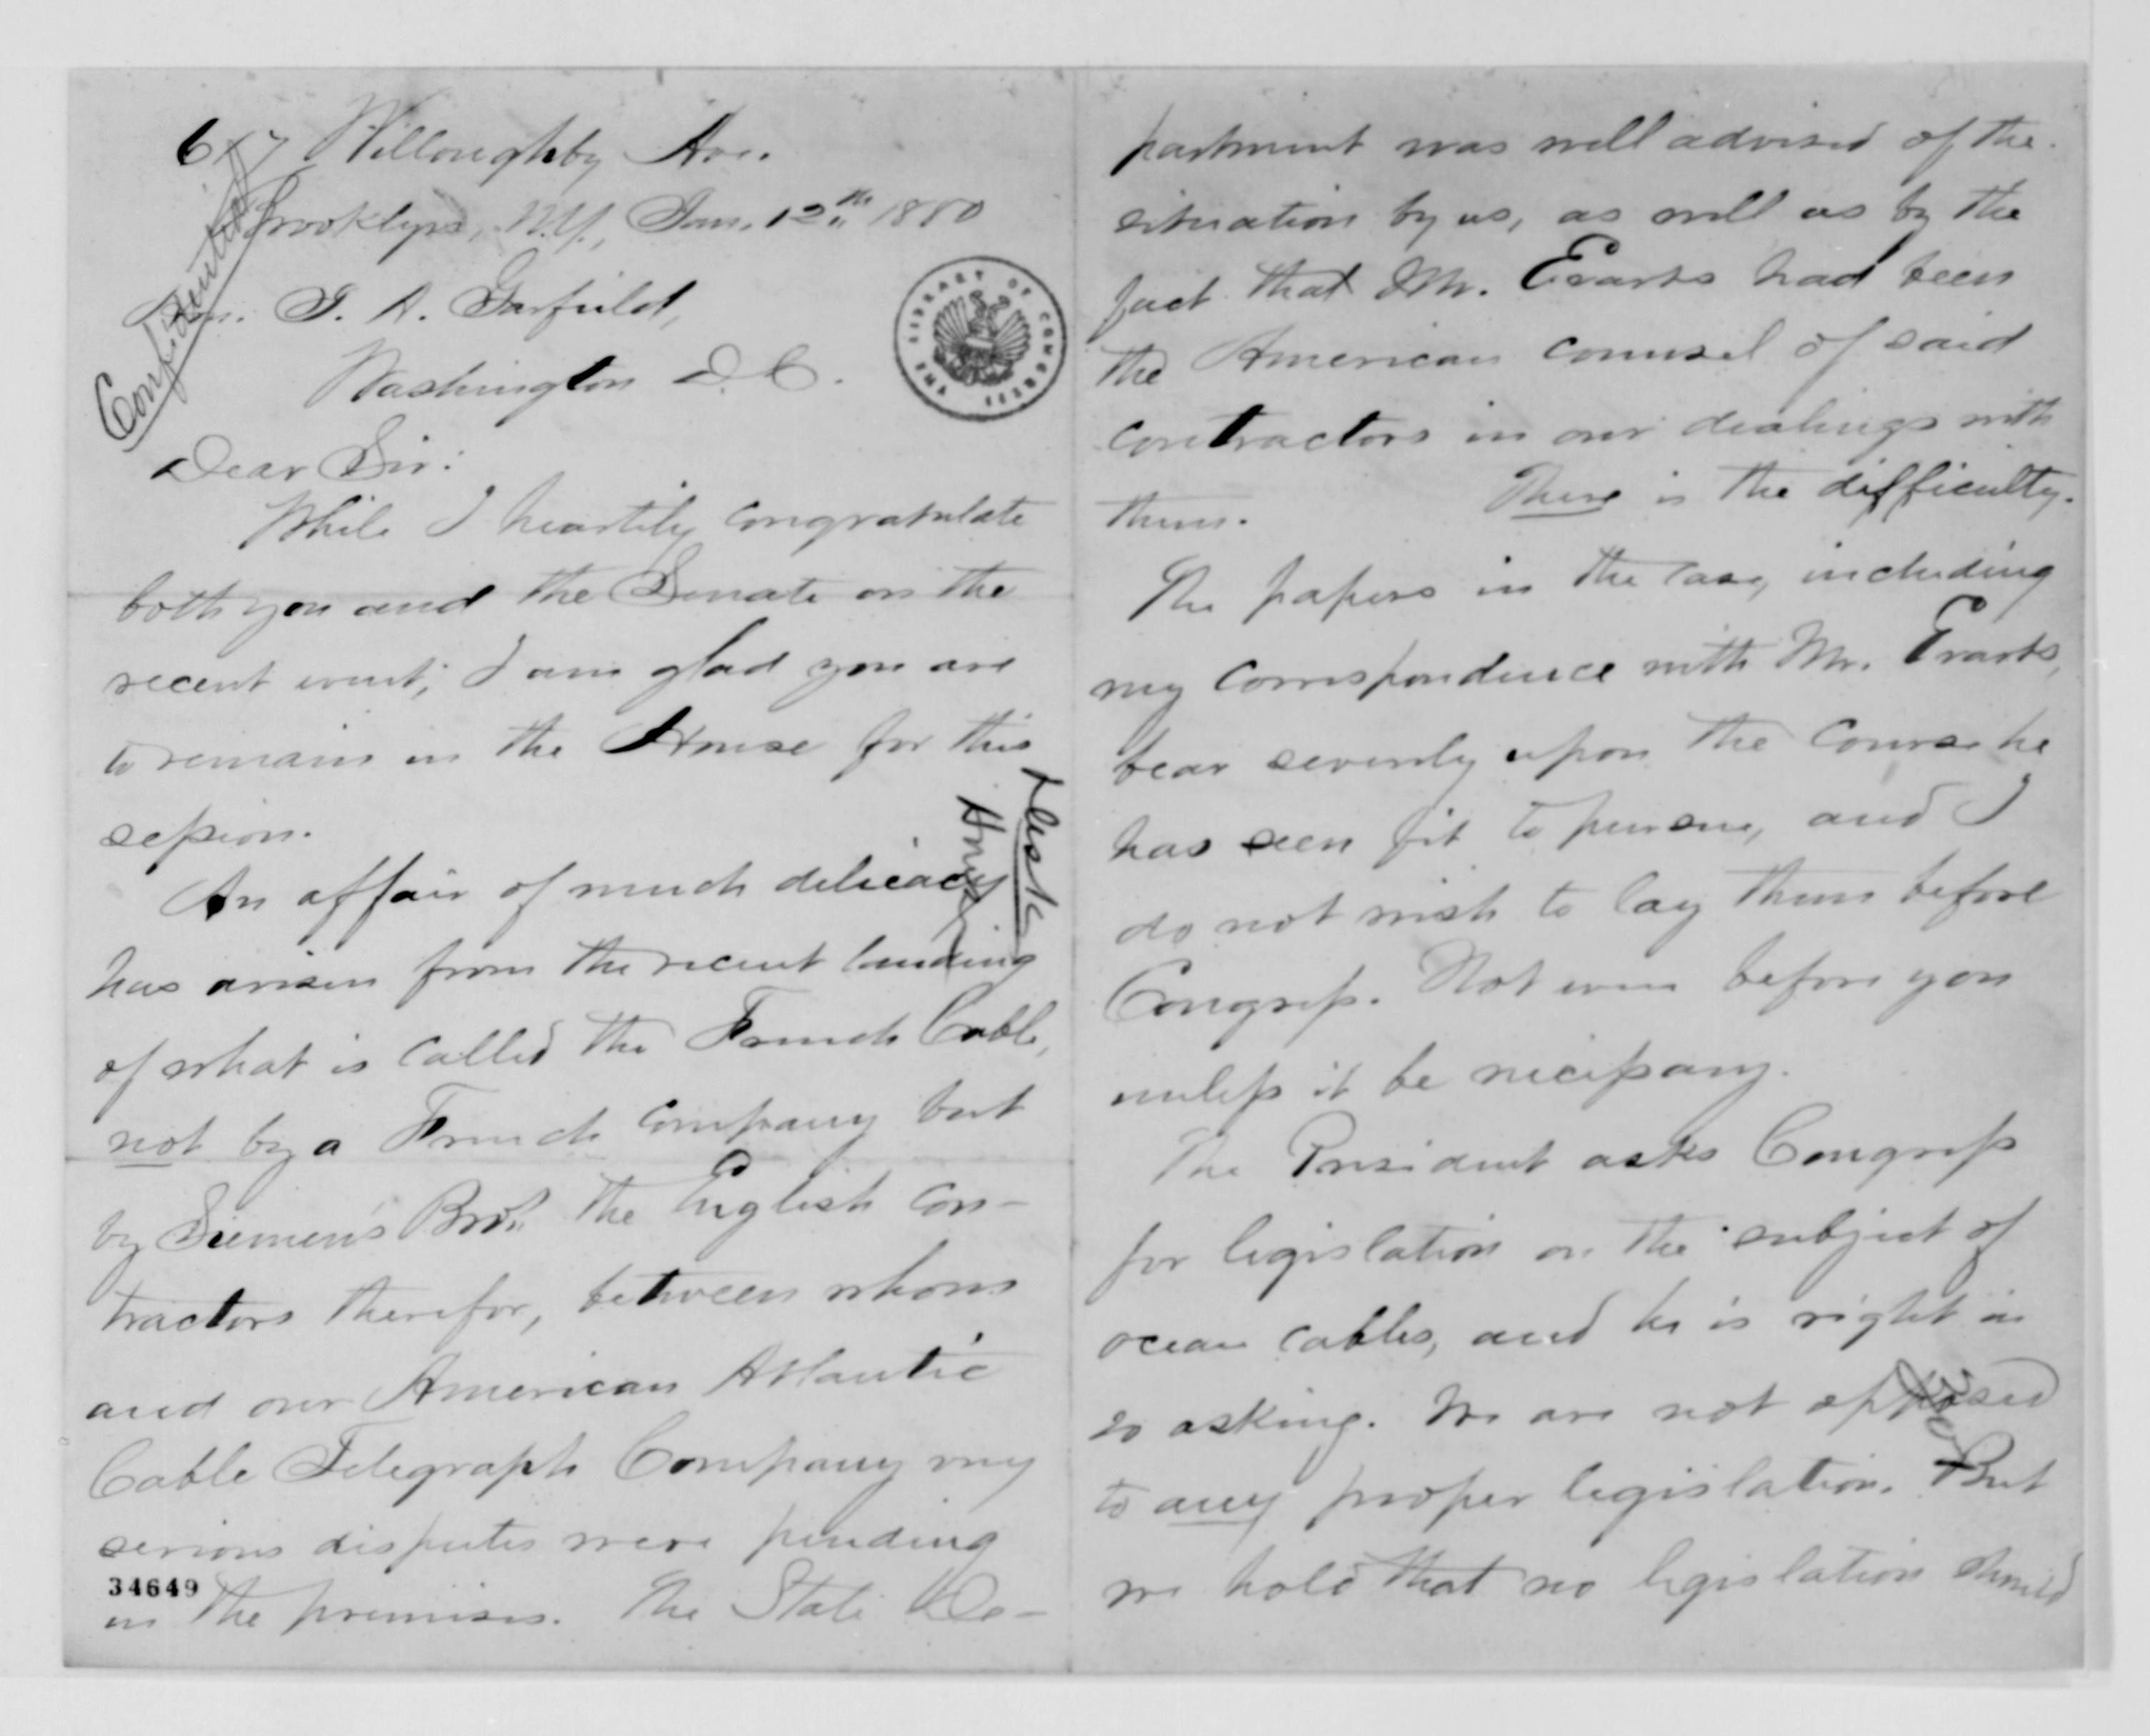 Willoughby Ave.
Brooklyn, N.Y., Jan. 12th 1880
Confidential
Hon. J. A. Garfield,
Washington D.C.
THE LIBRARY OF CONGRESS
Dear Sir:
While I heartily congratulate
both you and the Senate on the
recent event; I am glad you are
to remain in the House for this
session.
An affair of much delicacy
has arisen from the recent landing
of what is called the French Cable,
not by a French company but
by Siemen's Bros. the English con-
tractors therefor, between whom
and our American Atlantic
Cable Telegraph Company my
serious disputes were pending
34649
in the premises. The State De-
partment was well advised of the
situation by us, as well as by the
fact that Mr. Evarts had been
the American counsel of said
contractors in our dealings with
them. There is the difficulty.
The papers in the case, including
my correspondence with Mr. Evarts,
bear severely upon the course he
has seen fit to pursue, and I
do not wish to lay them before
Congress. Not even before you
unless it be necessary.
The President asks Congress
for legislation on the subject of
ocean cables, and he is right in
so asking. We are not opposed
to any proper legislation. But
we hold that no legislation should